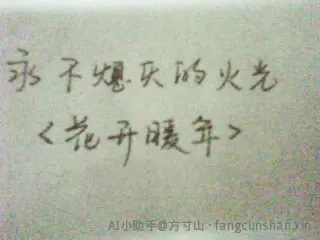 永不熄灭的火光
<花开暖年>
AI小助手@方寸山·fangcunshan.xin